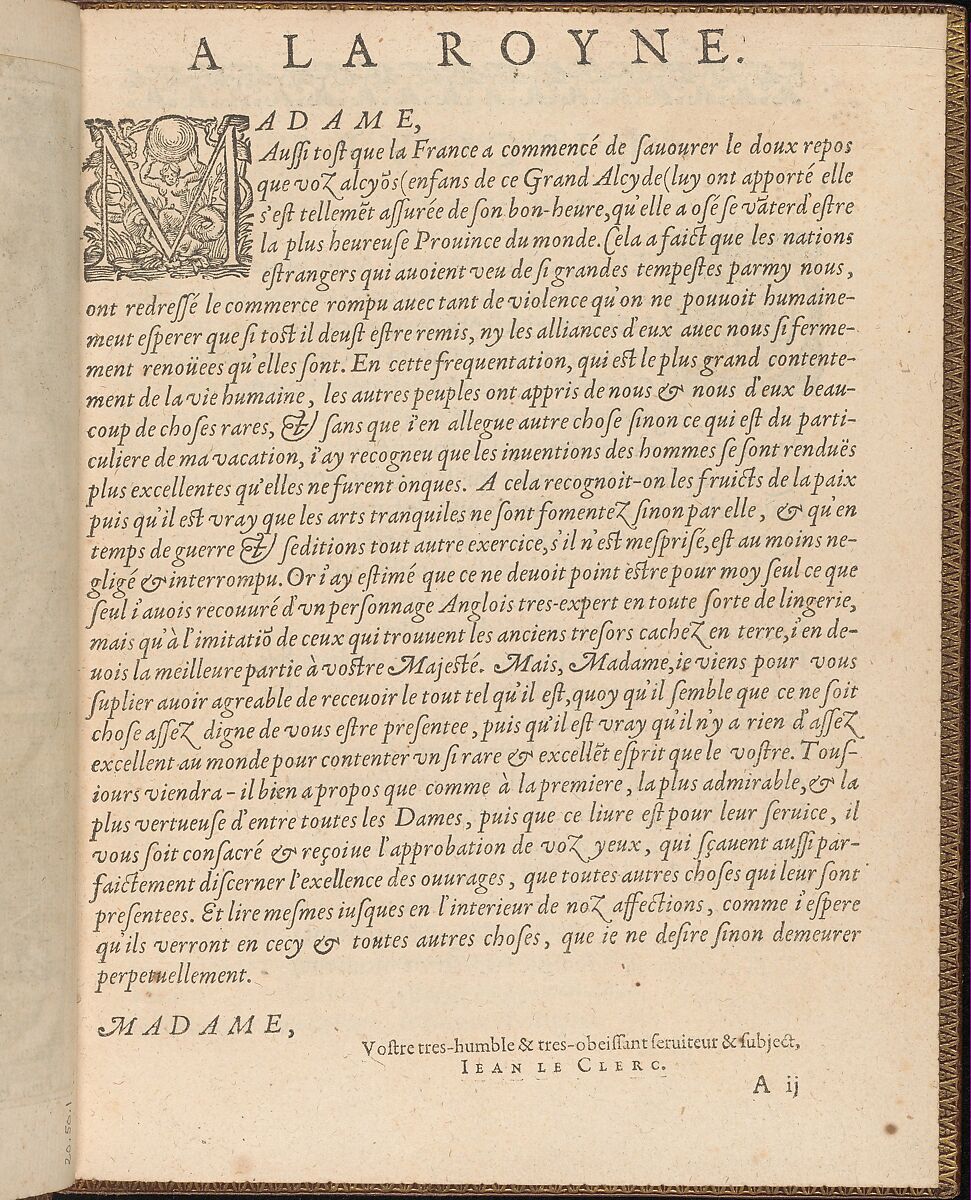 A LA ROYNE.
MADAME,
Auſſi toſt que la France a commencé de ſauourer le doux repos
que voz alcyõs(enfans de ce Grand Alcyde(luy ont apporté elle
s'eſt tellemẽt aſſurée de ſon bon-heure,qu'elle a oſé ſe vãter d'eſtre
la plus heureuſe Prouince du monde. Cela a faict que les nations
eſtrangers qui auoient veu de ſi grandes tempeſtes parmy nous,
ont redreſſé le commerce rompu auec tant de violence qu'on ne pouuoit humaine-
meut eſperer que ſi toſt il deuſt eſtre remis, ny les alliances d'eux auec nous ſi ferme-
ment renoüees qu'elles ſont. En cette frequentation, qui eſt le plus grand contente-
ment de la vie humaine, les autres peuples ont appris de nous & nous d'eux beau-
coup de choſes rares, & ſans que i'en allegue autre choſe ſinon ce qui eſt du parti-
culiere de ma vacation, i'ay recogneu que les inuentions des hommes ſe ſont renduës
plus excellentes qu'elles ne furent onques. A cela recognoit-on les fruicts de la paix
puis qu'il eſt vray que les arts tranquiles ne ſont fomentez ſinon par elle, & qu'en
temps de guerre & ſeditions tout autre exercice,s'il n'eſt meſpriſé,eſt au moins ne-
gligé & interrompu. Or i'ay eſtimé que ce ne deuoit point eſtre pour moy ſeul ce que
ſeul i'auois recouuré d'vn perſonnage Anglois tres-expert en toute ſorte de lingerie,
mais qu'à l'imitatiõ de ceux qui trouuent les anciens treſors cachez en terre,i'en de-
uois la meilleure partie à voſtre Majeſté. Mais, Madame,ie viens pour vous
ſuplier auoir agreable de receuoir le tout tel qu'il eſt,quoy qu'il ſemble que ce ne ſoit
choſe aſſez digne de vous eſtre preſentee, puis qu'il eſt vray qu'il n'y a rien d'aſſez
excellent au monde pour contenter vn ſi rare & excellẽt eſprit que le voſtre. Touſ-
iours viendra-il bien a propos que comme à la premiere, la plus admirable,& la
plus vertueuſe d'entre toutes les Dames, puis que ce liure eſt pour leur ſeruice, il
vous ſoit conſacré & reçoiue l'approbation de voz yeux, qui ſçauent auſſi par-
faictement diſcerner l'exellence des ouurages, que toutes autres choſes qui leur ſont
preſentees. Et lire meſmes iuſques en l'interieur de noz affections, comme i'eſpere
qu'ils verront en cecy & toutes autres choſes, que ie ne deſire ſinon demeurer
perpetuellement.
MADAME,
Voſtre tres-humble & tres-obeiſſant ſeruiteur & ſubject,
IEAN LE CLERC.
A ij
20.50.1